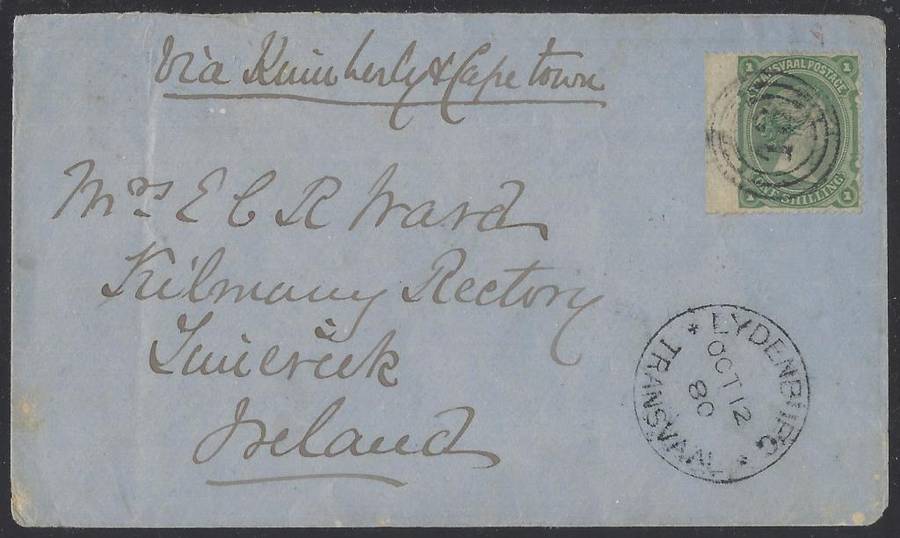 Via Kimberly & Cape town
1 TRANSVAAL POSTAGE 1
1 ONE SHILLING 1
Mrs E C R Ward
Kilmany Rectory
Limerick
Ireland
* LYDENBURG *
OCT 12
80
TRANSVAAL